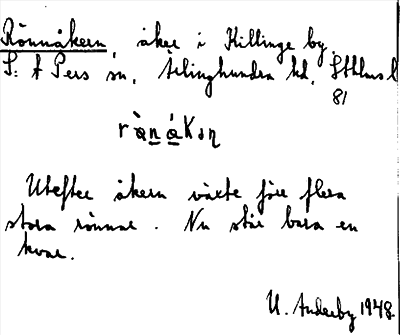 Rönnåkern, åker i Killinge by,
S:t Pers sn, Ærlinghundra hd, Sthlms l
81
r æ̀ n ǻ k ə ɳ
Utefter åkern växte förr flera
stora rönnar. Nu står bara en
kvar.
U. 1948